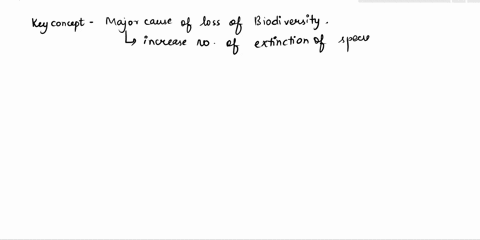 Key concept - Major cause of loss of Biodiversity.
↳ increase no. of extinction of spece